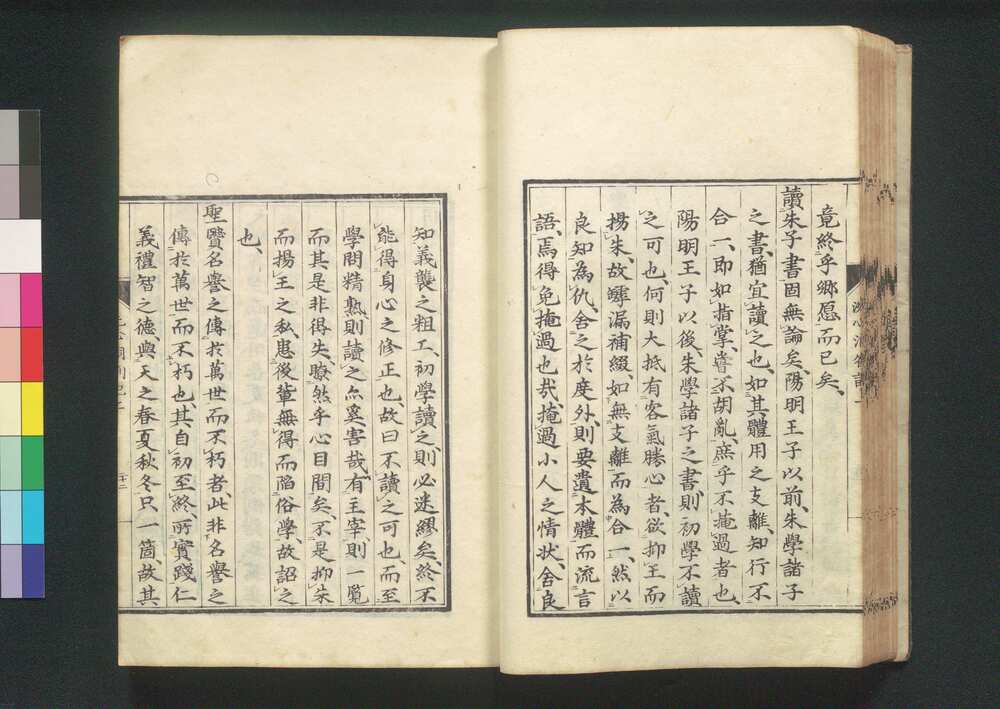 竟終乎鄉愿而已矣、
讀朱子書固無論矣、陽明王子以前、朱學諸子
之書、猶宜讀之也、如其體用之支離、知行不
合一、即如指掌、嘗不胡亂、庶乎不掩過者也、
陽明王子以後、朱學諸子之書、則初學不讀
之可也、何則大抵有客氣勝心者、欲抑王而
揚朱、故罅漏補綴、如無支離而為合一、然以
良知為仇、舍之於度外、則要遺本體而流言
語、焉得免掩過也哉、掩過小人之情狀、舍良
知義襲之粗工、初學讀之、則必迷繆矣、終不
能得身心之修正也、故曰不讀之可也、而至
學問精熟、則讀之亦奚害哉、有主宰、則一覽
而其是非得失、瞭然乎心目間矣、不是抑朱
而揚王之私、患後輩無得而陷俗學、故詔之
也、
聖賢名譽之傳於萬世而不朽者、此非名譽之
傳於萬世而不朽也、其自初至終所實踐仁
義禮智之德、與天之春夏秋冬只一箇、故其